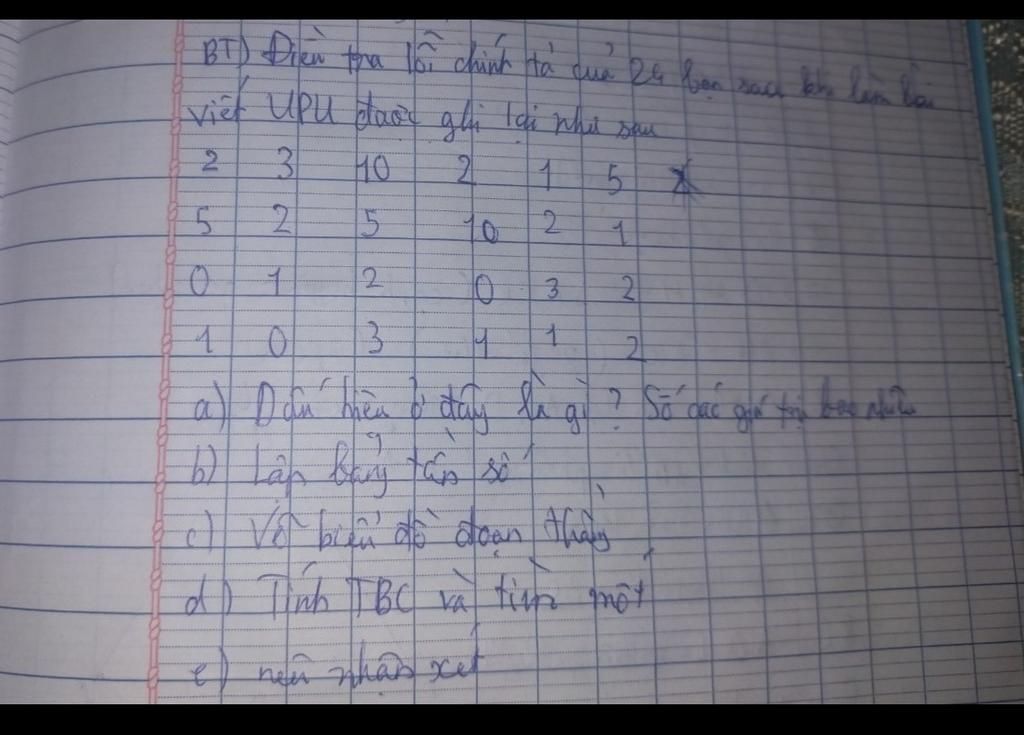 BT) Điều tra lỗi chính tả của 24 bạn sau khi làm bài
viết UPU được ghi lại như sau
2 3 10 2 1 5
5 2 5 10 2 1
0 1 2 0 3 2
1 0 3 1 1 2
a) Dấu hiệu ở đây là gì ? Số các giá trị bao nhiêu
b) Lập bảng tần số
c) Vẽ biểu đồ đoạn thẳng
d) Tính TBC và tìm mốt
e) nêu nhận xét